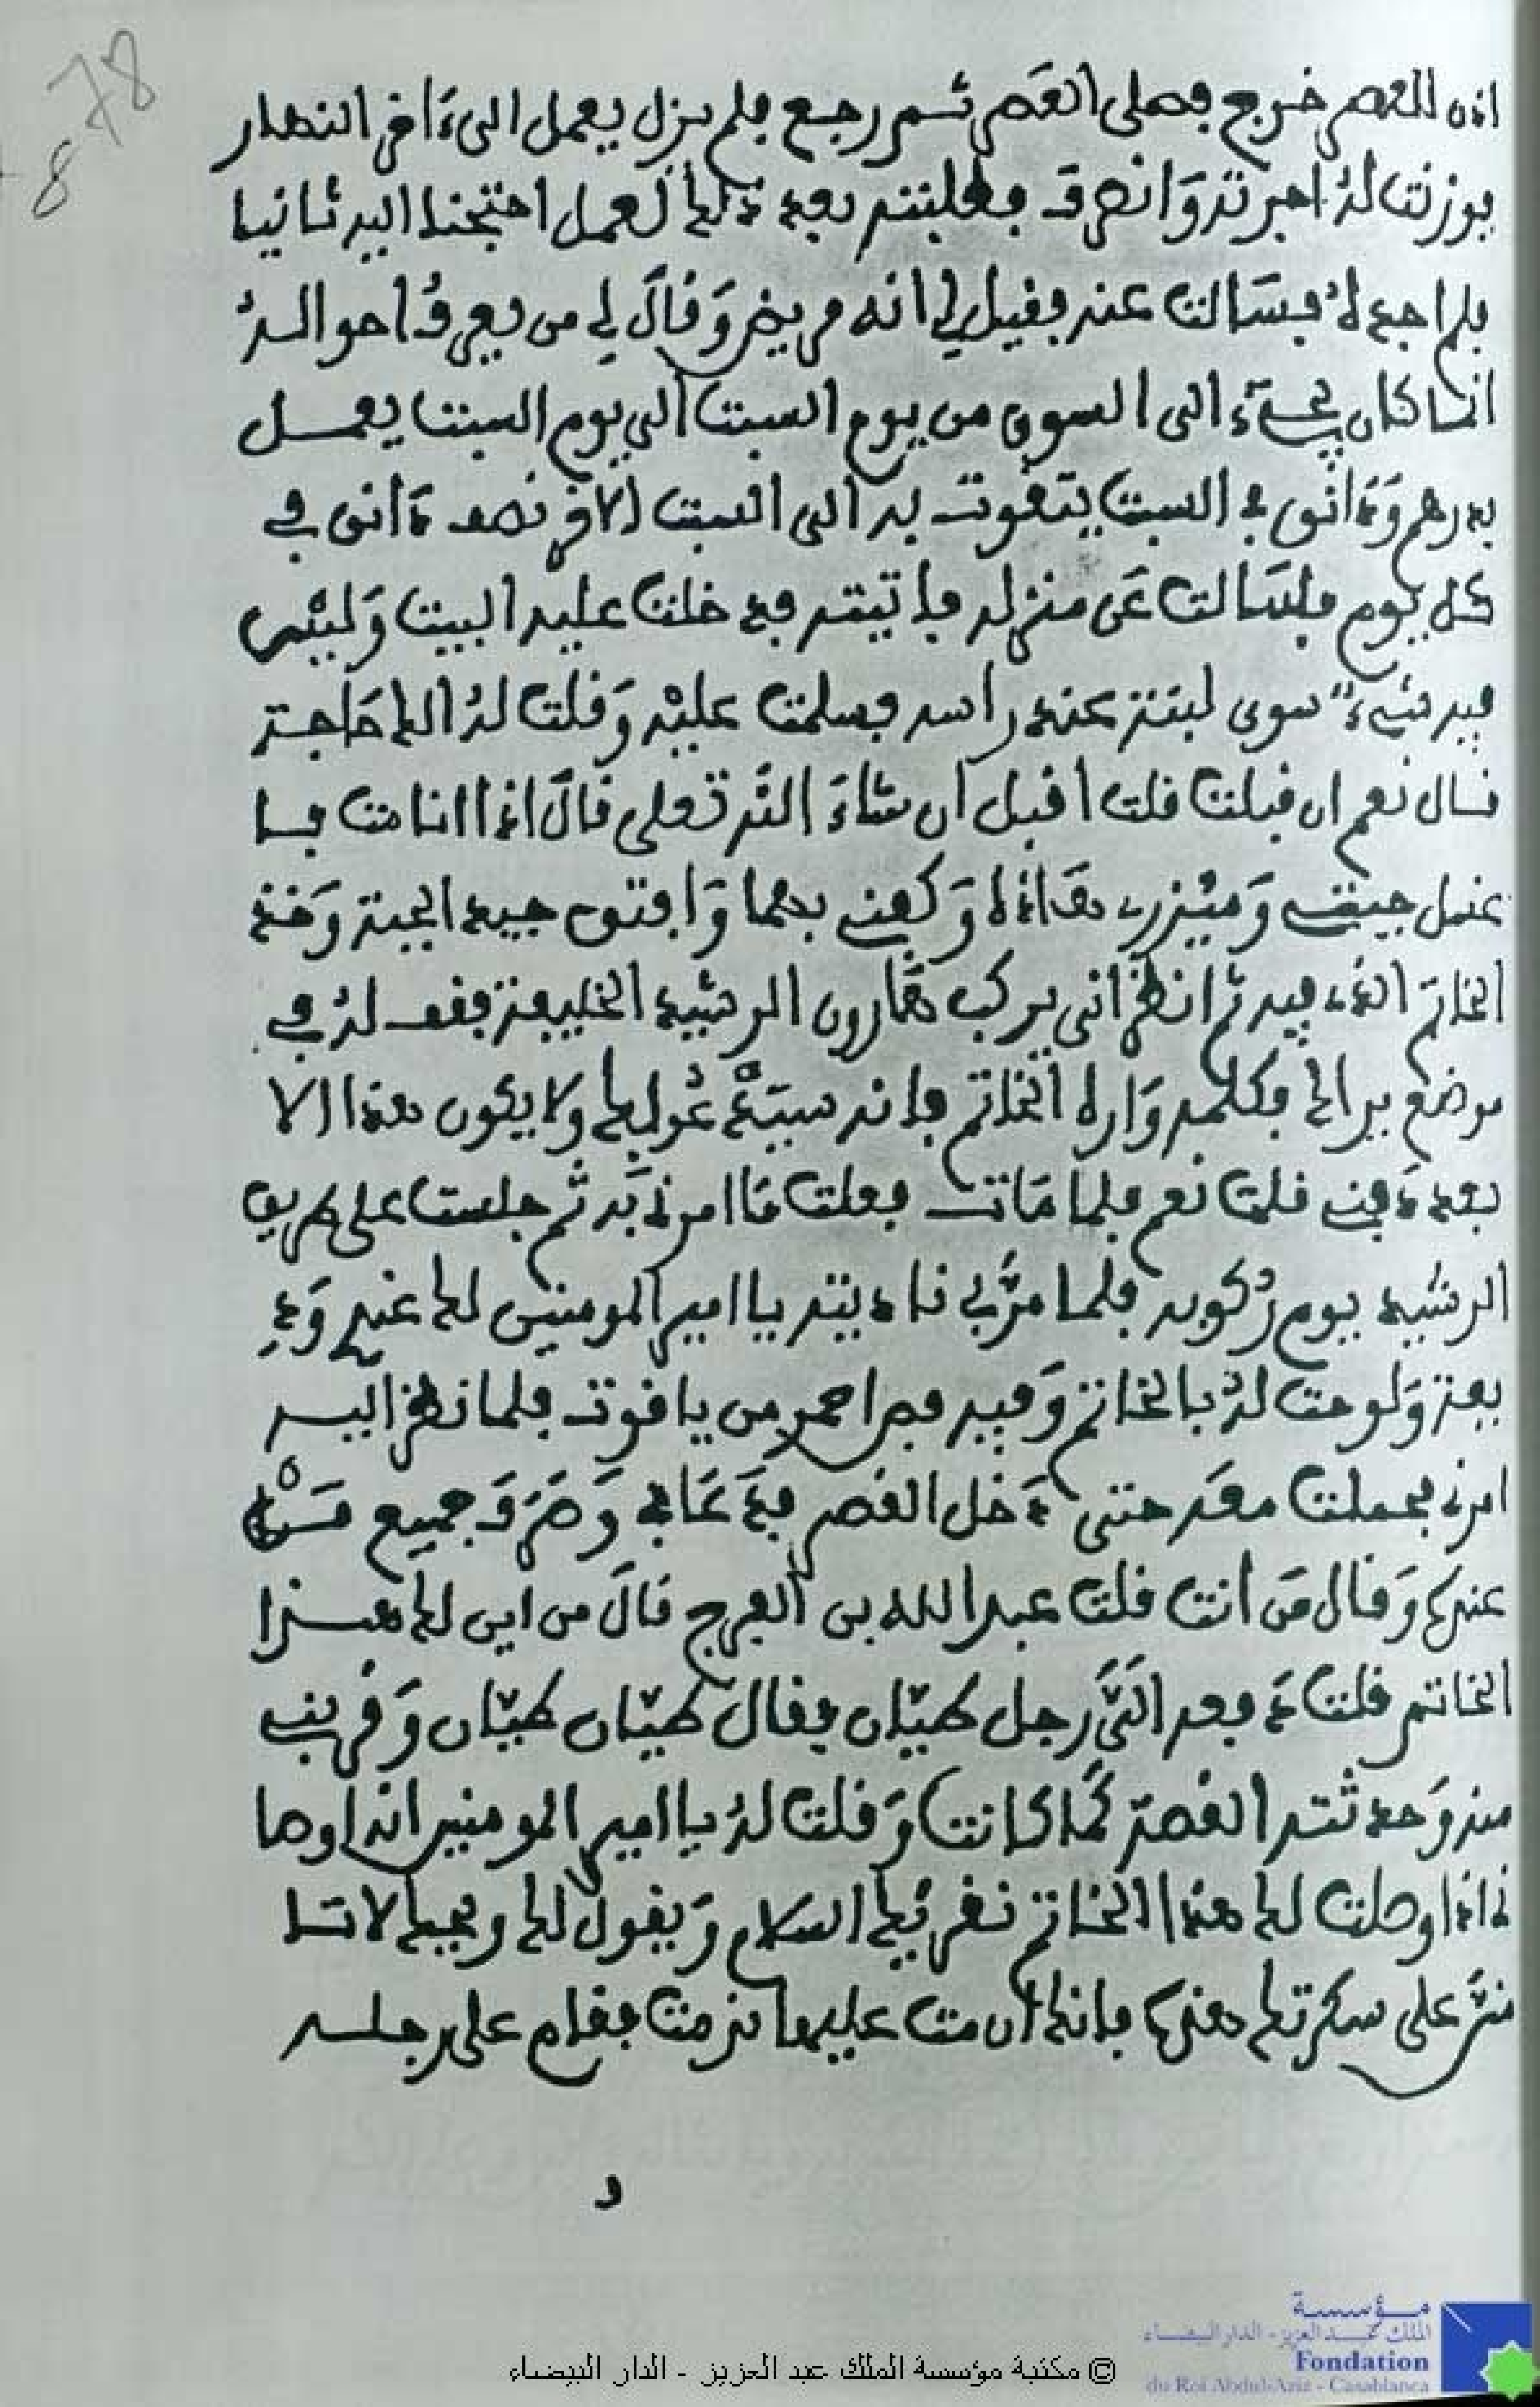 78
8
اذن للعصر خرج فصلى العصر ثم رجع فلم يزل يعمل الى ءاخر النهار
فوزنت لهُ اجرته وَانصرف فطلبته بعد ذلك لعمل احتجنا اليه ثانيا
فلم اجدهُ فسَالت عنه فقيل لي انه مريض وَقالَ لي من يعرفُ احوالهُ
انما كان يجيٓء الى السوق من يوم السبت الى يوم السبت يعمل
بدرهم وَدَانق في السبت يتقوت به الى السبت الاخر نصف دَانق في
كل يوم فلسَالت عَن منزله فاتيته فدخلت عليه البيت وَليْس
فيه شيءٌ سوى لبنة عند راسه فسلمت عليْه وَقلت لهُ الك حَاجة
قال نعم ان قبلت قلت اقبل ان شاءَ الله تعلى قالَ اذا انا مت فا
غسل جبتي وَميْزري هَاذا وَكفني بهما وَافتق جيب الجبة وَخذ
الخاتمَ الذي فيه ثم انظر انى يركب هَارون الرشيد الخليفة فقف لهُ في
موضع يراك فكلمه وَاره الخاتم فانه سيَدْعُو لك ولا يكون هذا الا
بعد دَفني قلت نعم فلما مَات فعلت مَا امرني به ثم جلست على طريق
الرشيد يوم رُكوبه فلما مرَّ بي ناديته يا امير المومنين لك عندي وَد
يعة وَلوحت لهُ بالخاتم وَفيه فص احمر من ياقوت فلما نظر اليه
امرني فحملت معَه حتى دَخل القصر فدَعَاني وَصَرَفَ جميع مَنْ
عندهُ وَقال مَن انت قلت عبد الله بن الفرج قالَ من اين لك هذا
الخاتم قلت دَفعه اليَّ رجل طيّان فقالَ طيّان طيّان وَقربني
منه وَحدثته القصة كمَا كانت وَقلت لهُ يا امير المومنين انه اوصا
ني اذا وصلت لك هذا الخاتم نقرئك السلام وَيقول لك ويحك لا تمـ
ـتن على سكرتك هذه فانك ان مت عليها ندمت فقام على رجله
د
© مكتبة مؤسسة الملك عبد العزيز - الدار البيضاء
مؤسسة
الملك عبد العزيز - الدار البيضاء
Fondation
du Roi Abdul-Aziz - Casablanca